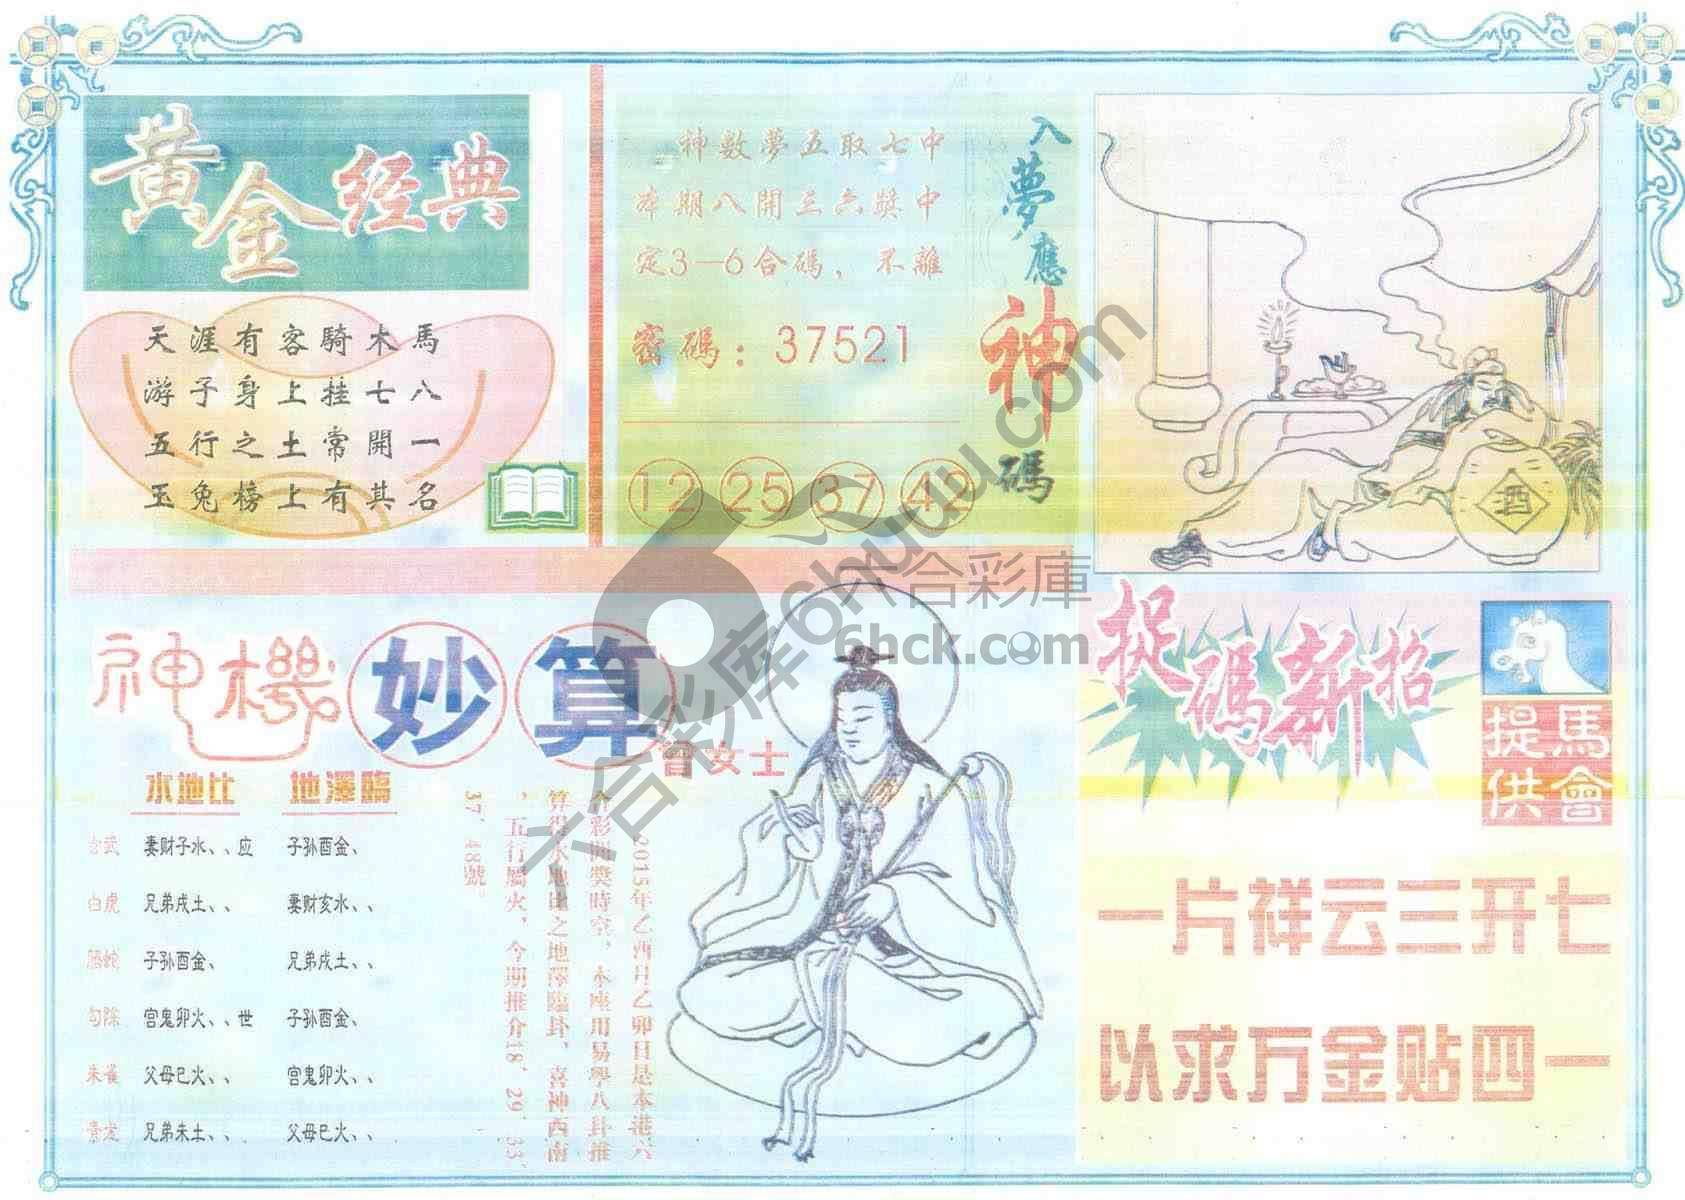 黄金经典
天涯有客騎木馬
游子身上挂七八
五行之土常開一
玉兔榜上有其名
神數夢五取七中
本期八開三六獎中
定3—6合碼、不離
密碼：37521
12 25 37 42
入夢應神碼
酒
神機妙算
曾女士
水地比 地澤臨
玄武 妻财子水、、应 子孙酉金、
白虎 兄弟戌土、、 妻财亥水、、
螣蛇 子孙酉金、 兄弟戌土、、
勾陈 官鬼卯火、、世 子孙酉金、
朱雀 父母巳火、、 官鬼卯火、、
青龙 兄弟未土、、 父母巳火、、
2015年乙酉月乙卯日是本港六
合彩開獎時空，本座用易學八卦推
算得水地比之地澤臨卦，喜神西南
，五行屬火，今期推介18、29、33、
37、48號。
捉碼新招
馬會提供
一片祥云三开七
以求万金贴四一
六合彩库6huuu.com
六合彩庫
6hck.com